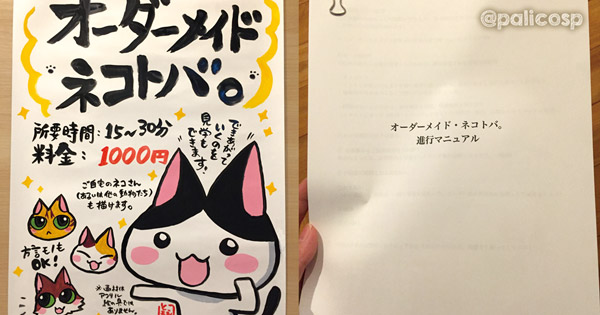 オーダーメイド
ネコトバ。
所要時間:15〜30分
料金:1000円
できあがって
いくのを
見学も
できます!
ご自宅のネコさん
(あるいは他の動物たち)
も描けます。
方言でも
OK!
※画材は
アクリル
絵の具では
ありません。
@palicosp
オーダーメイド・ネコトバ。
進行マニュアル